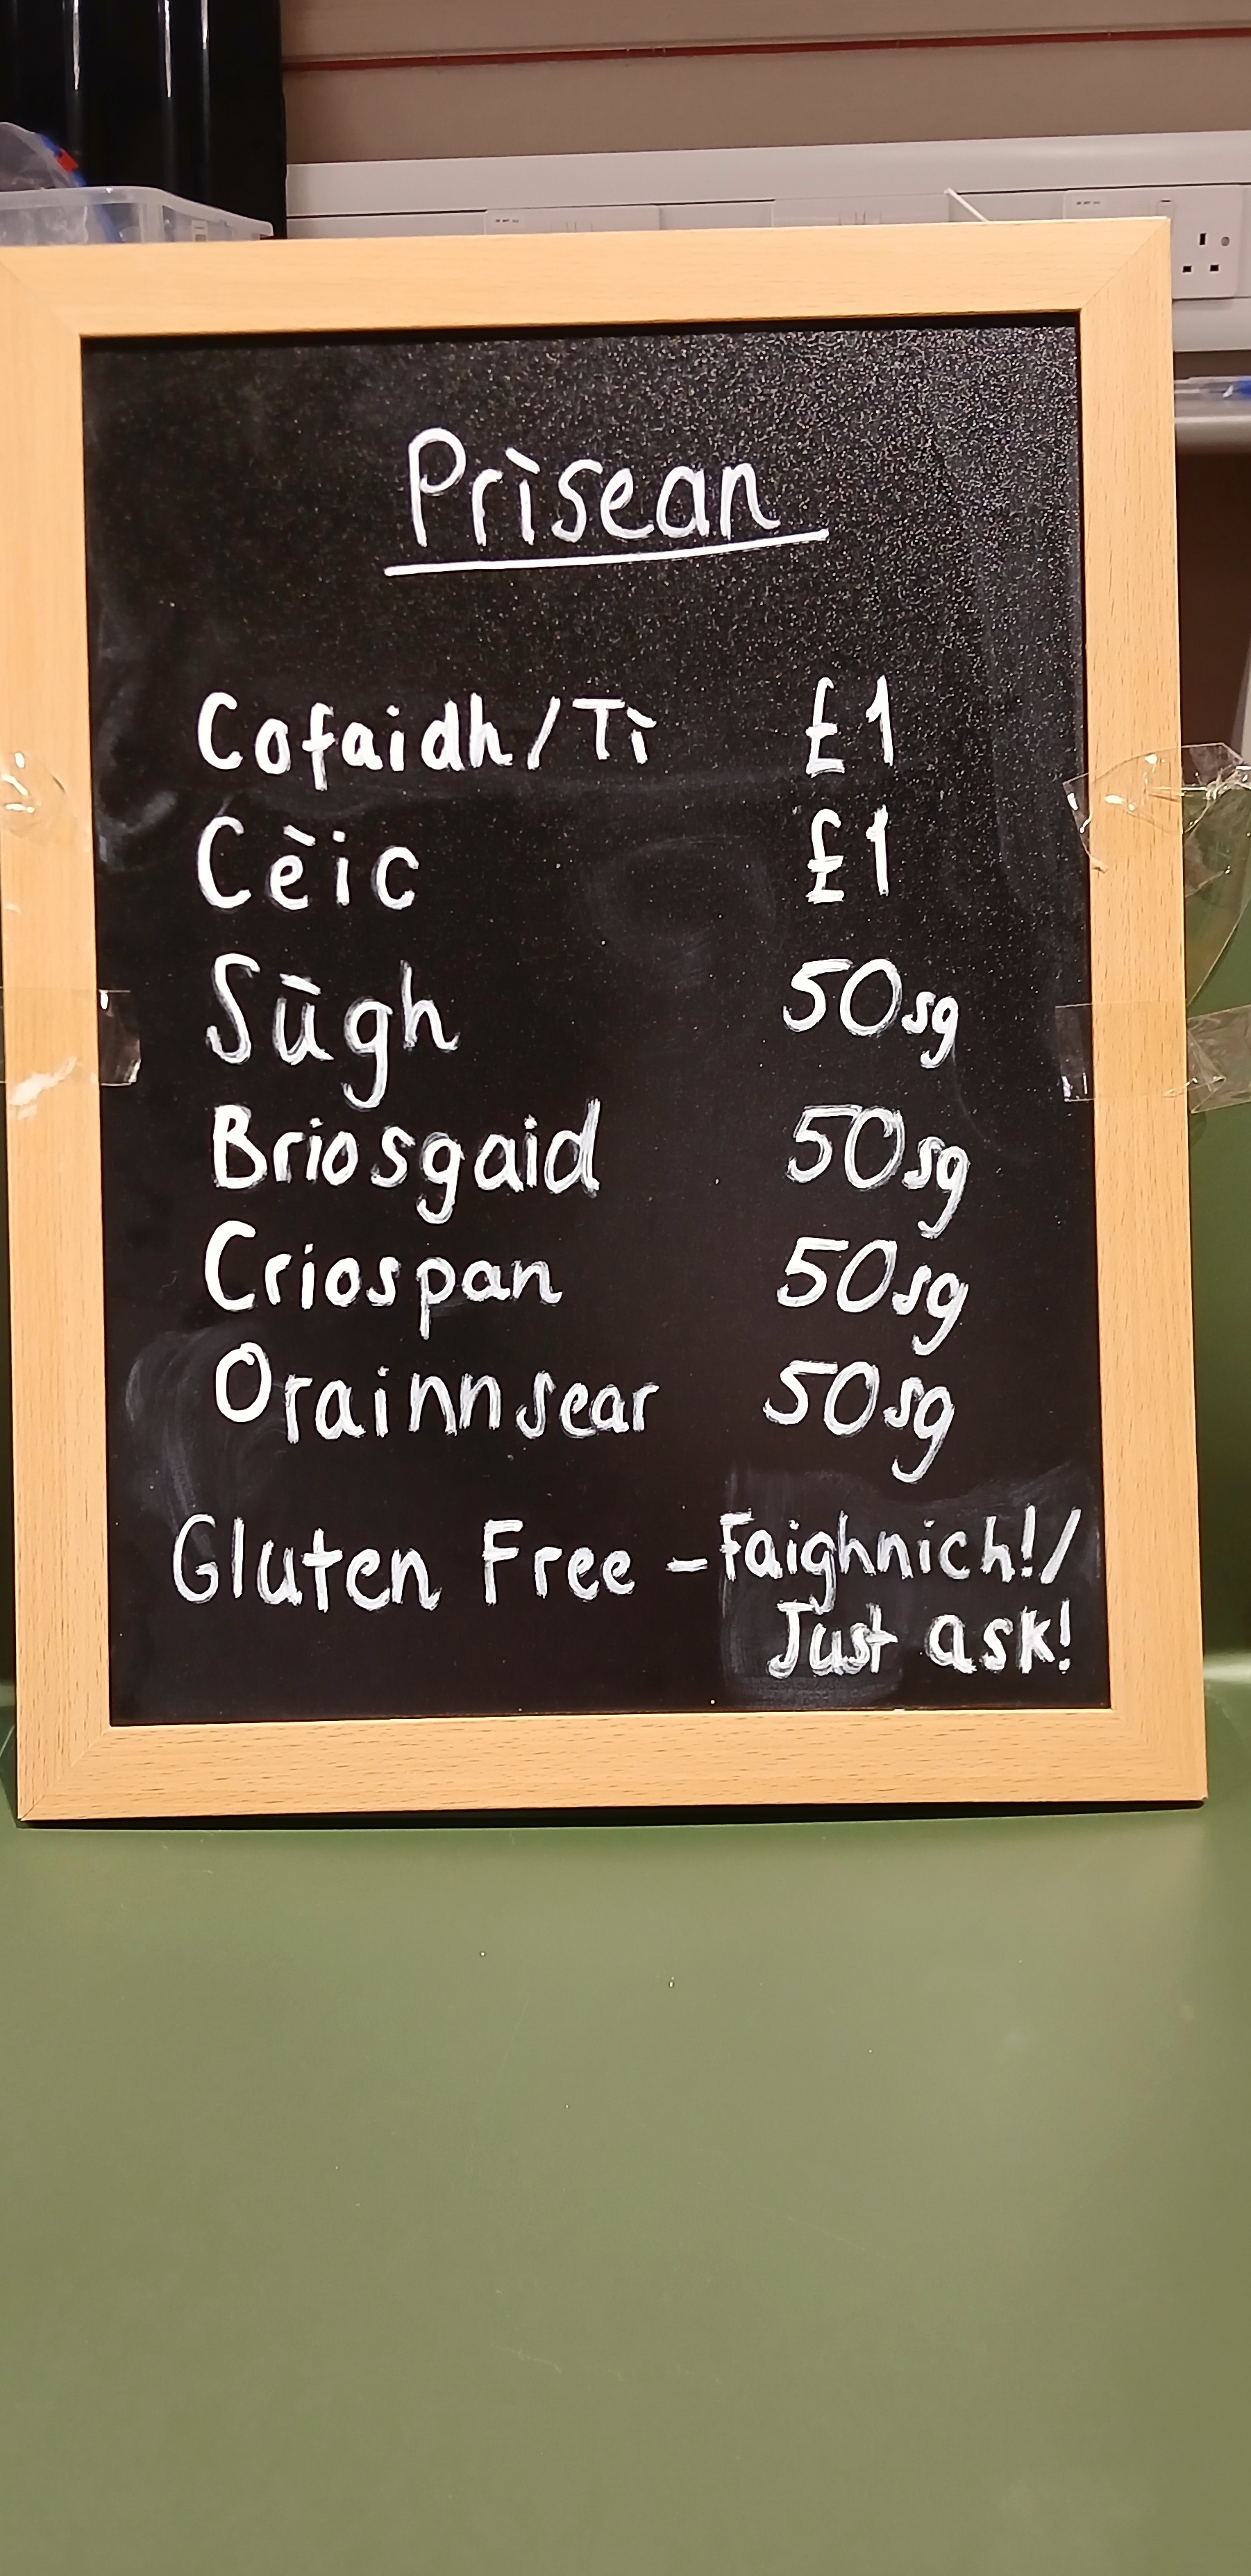 Prìsean
Cofaidh/Tì £1
Cèic £1
Sùgh 50sg
Briosgaid 50sg
Criospan 50sg
Orainnsear 50sg
Gluten Free - Faighnich!/
Just ask!